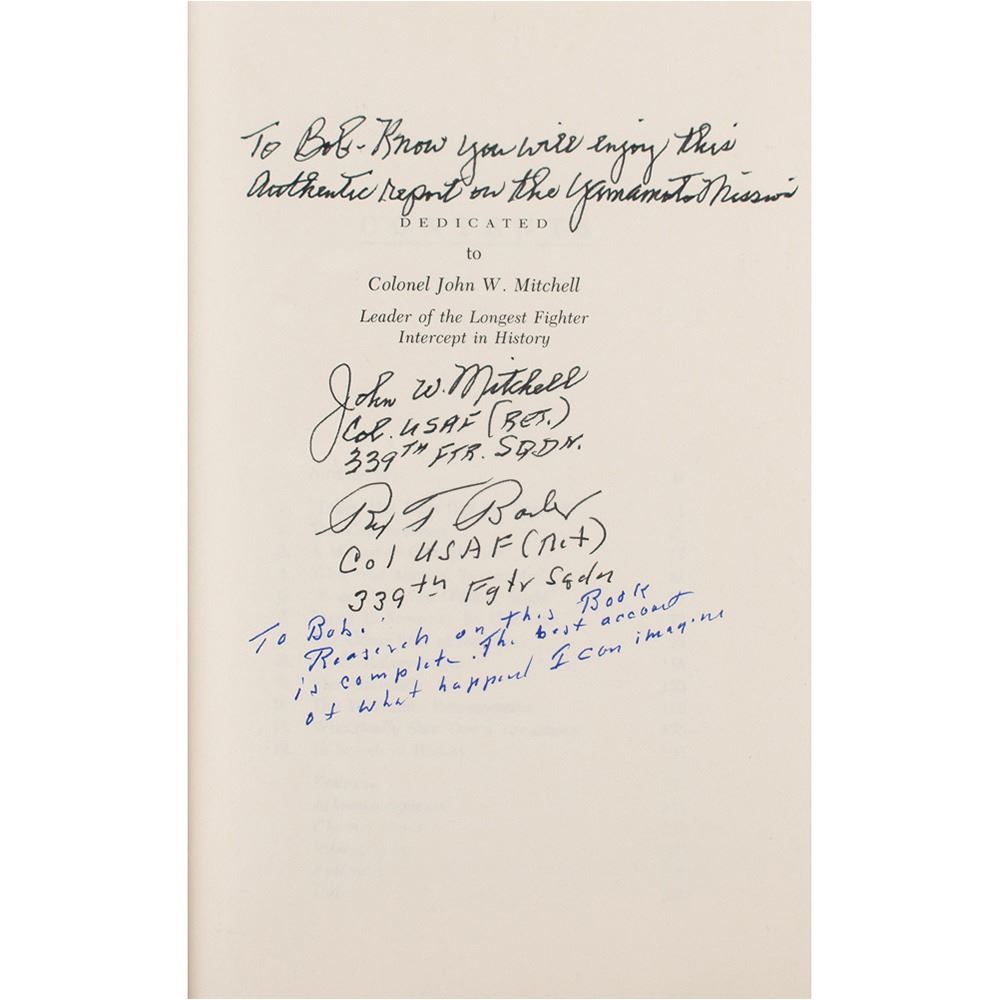 To Bob - Know you will enjoy this
Authentic report on the Yamamoto Mission
DEDICATED
to
Colonel John W. Mitchell
Leader of the Longest Fighter
Intercept in History
John W. Mitchell
Col. USAF (RET.)
339TH FTR. SQDN.
Rex T Barber
Col USAF (Ret)
339th Fgtr Sqdn
To Bob:
Reaserch on this Book
is complete. The best account
of what happend I can imagine